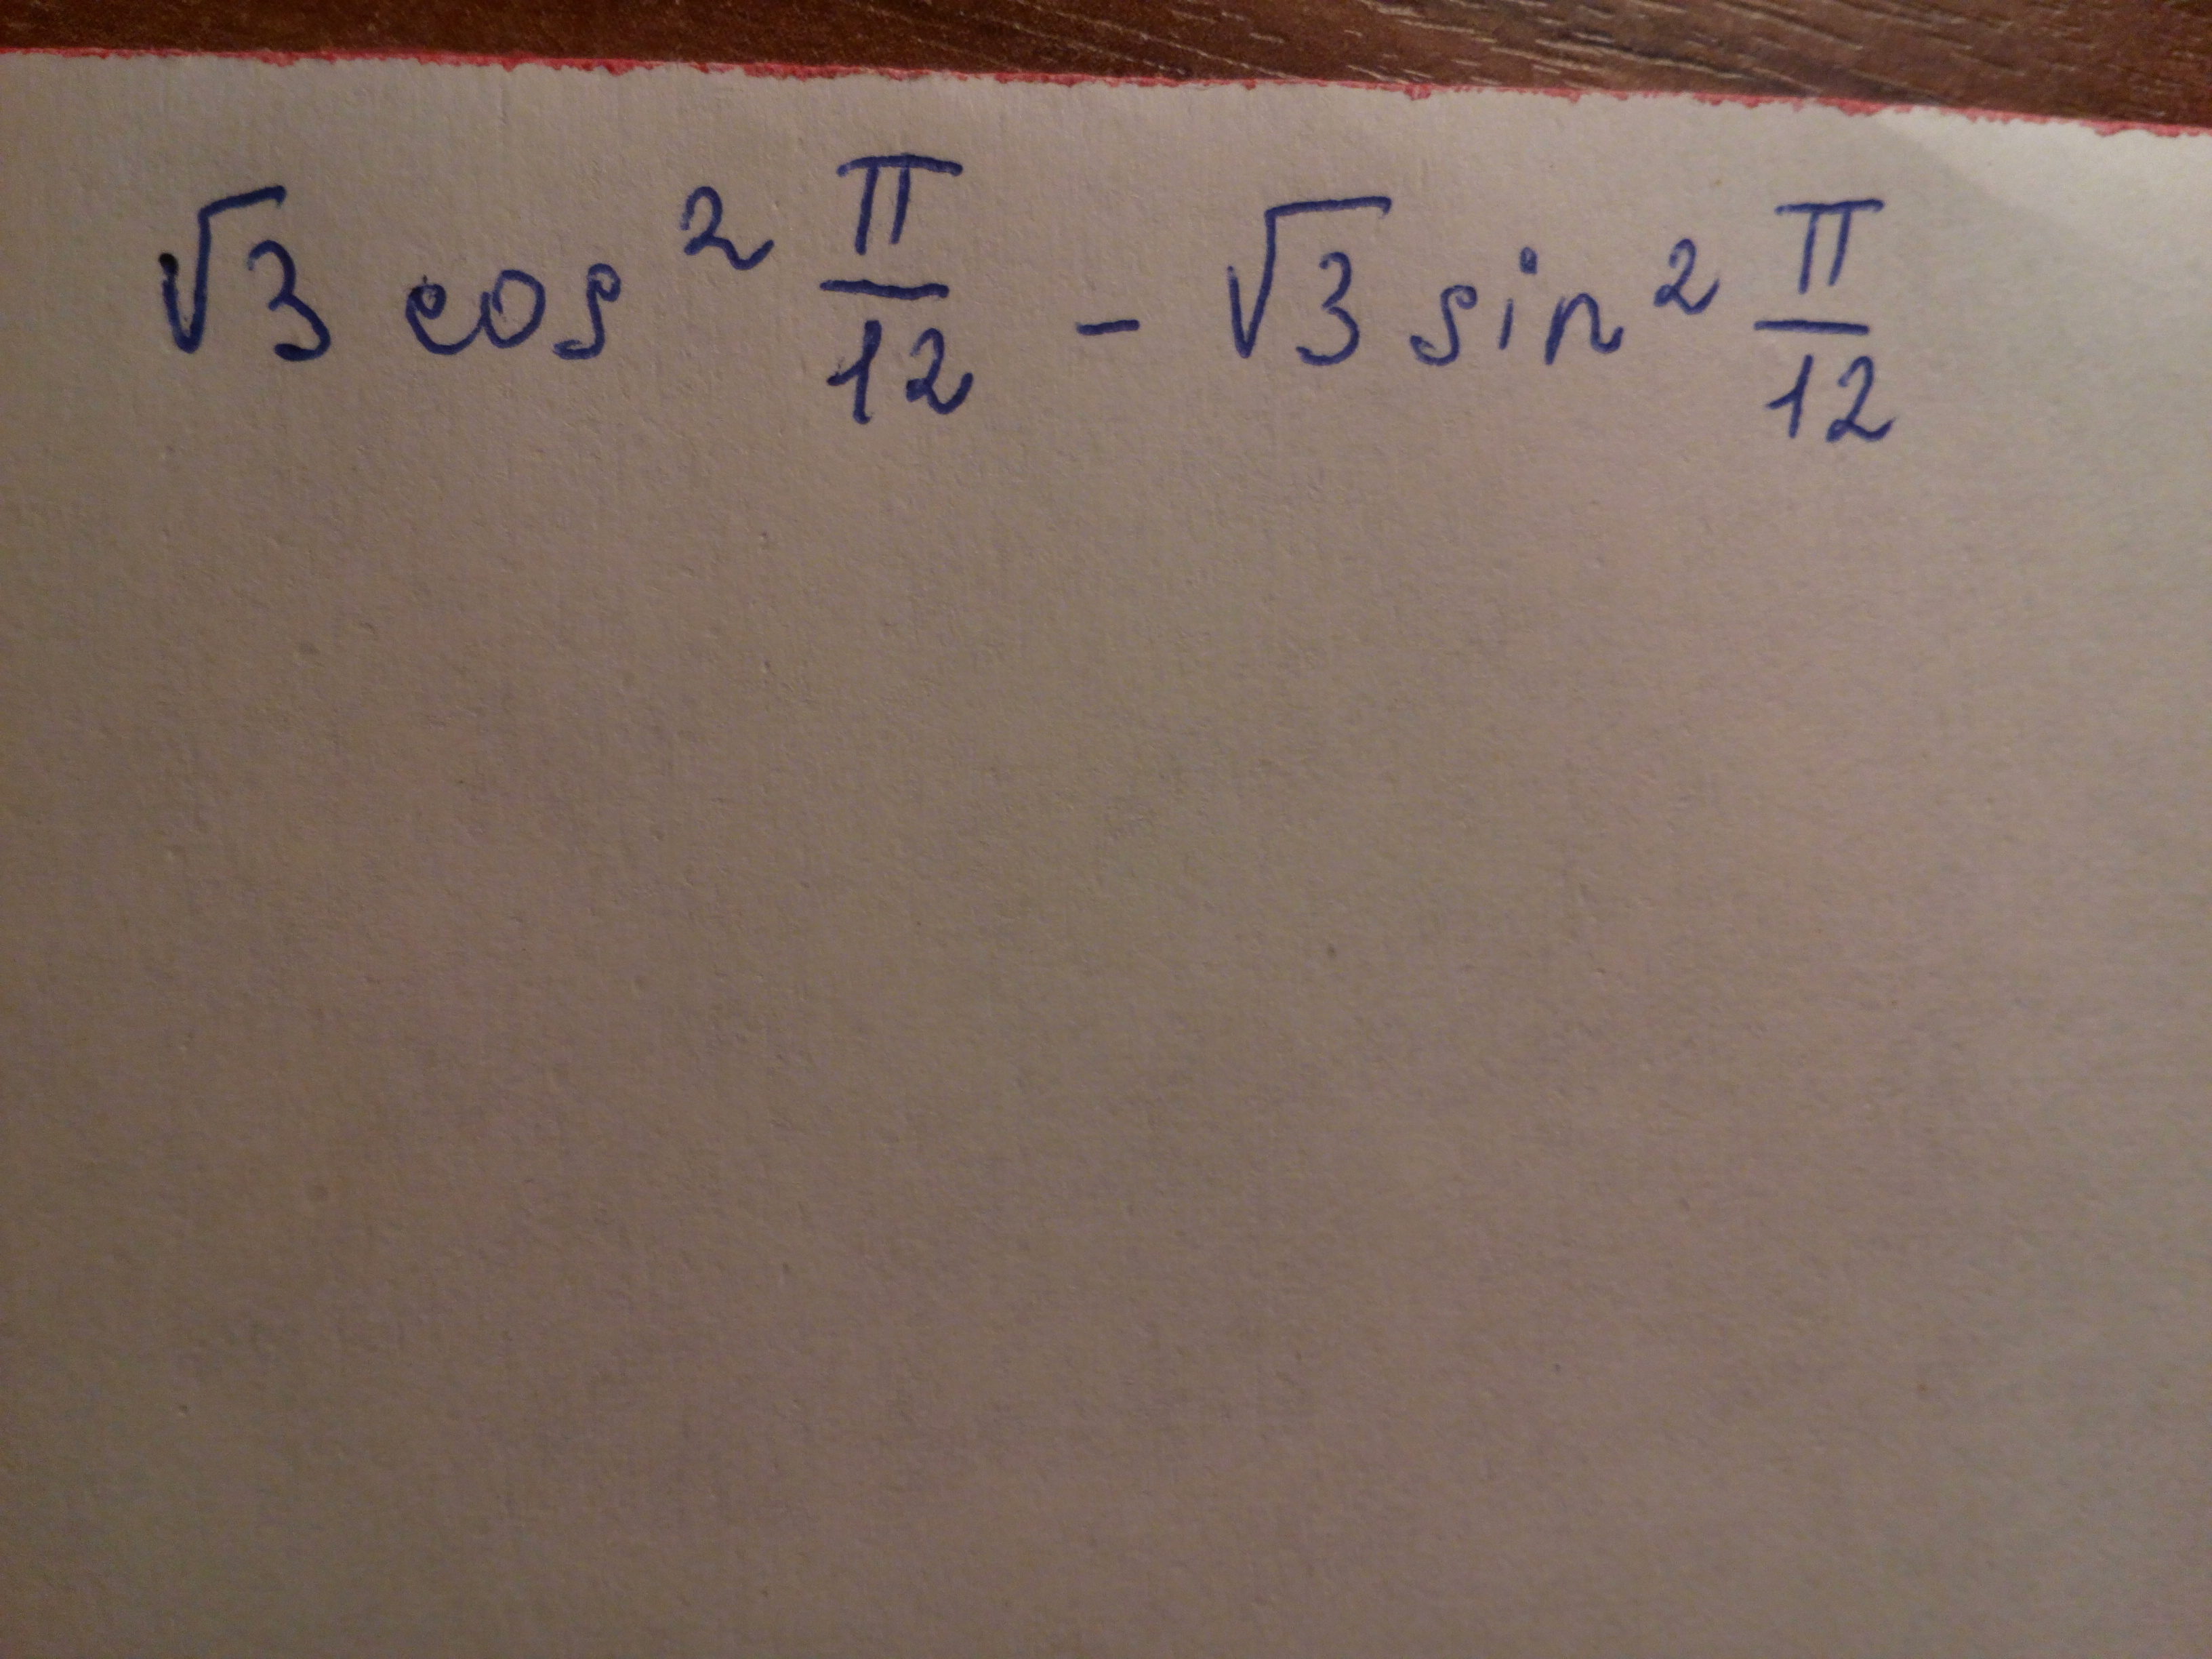 √3 cos² π/12 - √3 sin² π/12